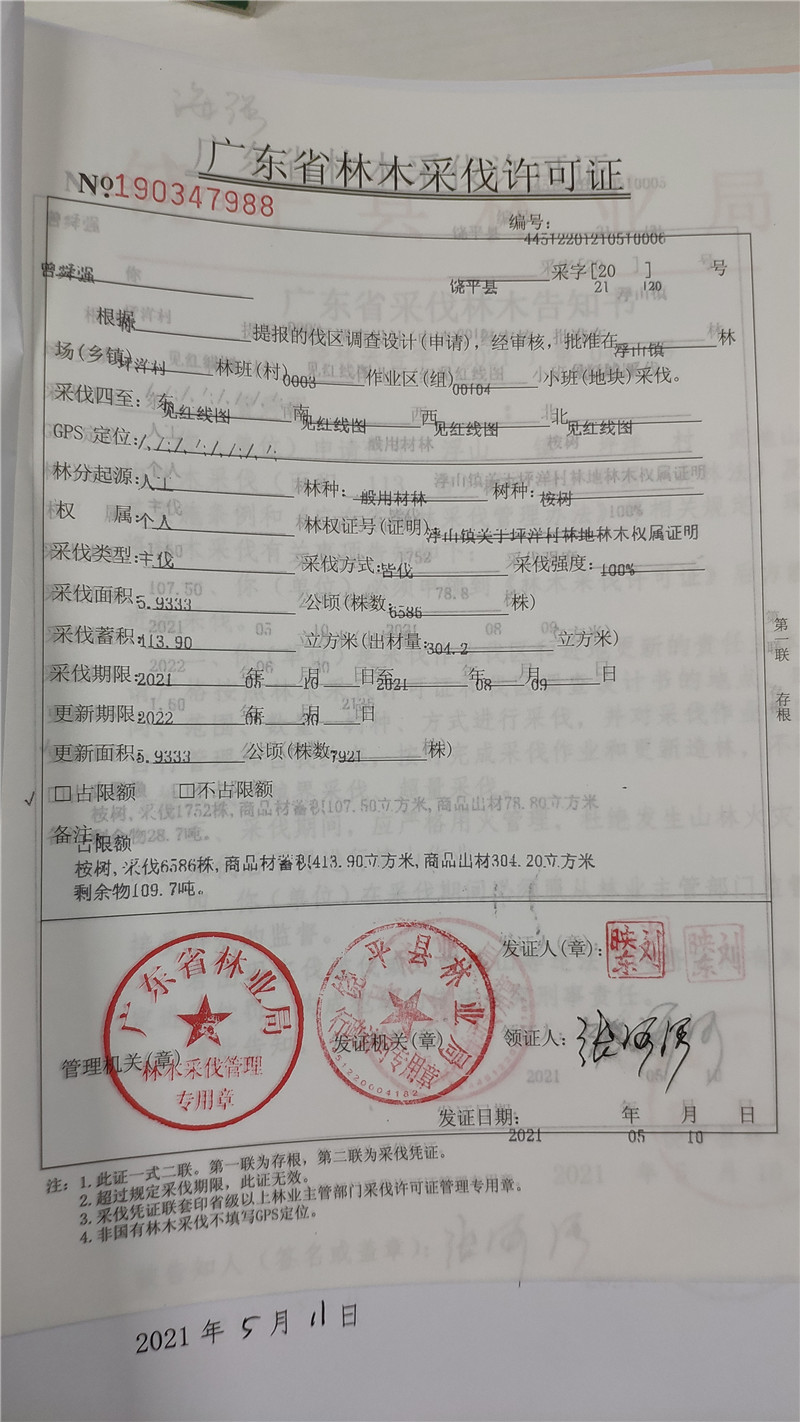 广东省林木采伐许可证
№190347988
编号:
44512201210510006
饶平县 采字[2021]120号
根据你 提报的伐区调查设计(申请),经审核,批准在浮山镇 林
场(乡镇)坪洋村 林班(村)0003 作业区(组)00104 小班(地块)采伐。
采伐四至:东见红线图 南见红线图 西见红线图 北见红线图
GPS 定位:
林分起源:人工 林种:一般用材林 树种:桉树
权 属:个人 林权证号(证明)浮山镇关于坪洋村林地林木权属证明
采伐类型:主伐 采伐方式:皆伐 采伐强度:100%
采伐面积:5.9333 公顷(株数:6586 株)
采伐蓄积:413.90 立方米(出材量:304.2 立方米)
采伐期限:2021 年 05 月 10 日至 2021 年 08 月 09 日
更新期限:2022 年 06 月 30 日
更新面积:5.9333 公顷(株数7921 株)
✓ □占限额 □不占限额
备注:
占限额
桉树,采伐6586株,商品材蓄积413.90立方米,商品出材304.20立方米
剩余物109.7吨。
第一联 存根
广东省林业局
林木采伐管理
专用章
管理机关(章)
饶平县林业局
发证机关(章)
发证人(章):
刘映东
领证人:
发证日期: 2021 年 05 月 10 日
注: 1.此证一式二联。第一联为存根,第二联为采伐凭证。
2.超过规定采伐期限,此证无效。
3.采伐凭证联套印省级以上林业主管部门采伐许可证管理专用章。
4.非国有林木采伐不填写GPS定位。
2021 年 5 月 11 日